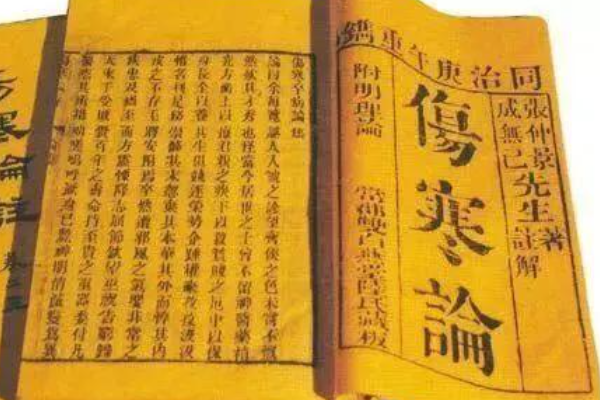 同治庚午重鐫
張仲景
成無己先生
著
註解
傷寒論
附明理論 常郡雙白燕堂陸氏藏板
傷寒卒病論集
論曰余每覽越人入虢之診望齊侯之色未嘗不慨
然歎其才秀也怪當今居世之士曾不留神醫藥精
究方術上以療君親之疾下以救貧賤之厄中以保
身長全以養其生但競逐榮勢企踵權豪孜孜汲汲
惟名利是務崇飾其末忽棄其本華其外而悴其內
皮之不存毛將安附焉卒然遭邪風之氣嬰非常之
疾患及禍至而方震慄降志屈節欽望巫祝告窮歸
天束手受敗賚百年之壽命持至貴之重器委付凡
醫恣其所措咄嗟嗚呼厥身已斃神明消滅變為異
寒論註